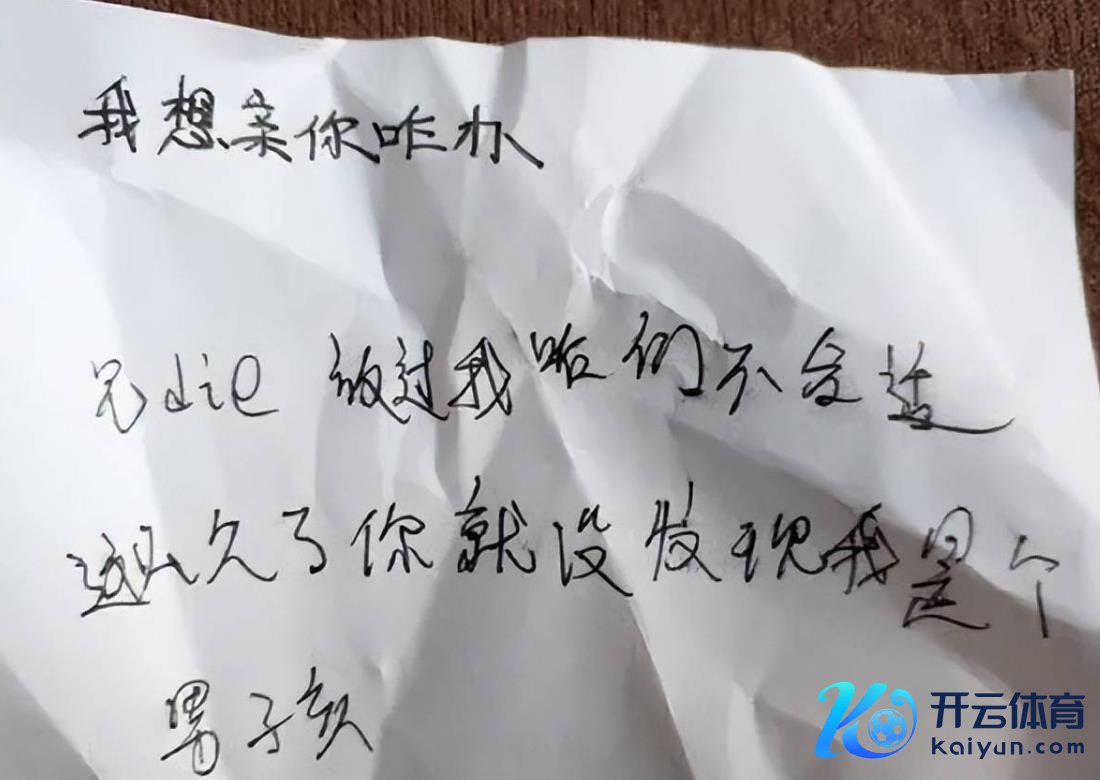 我想亲你咋办
兄die 放过我咱们不合适
这么久了你就没发现我是个
男子孩
开云体育
kaiyun.com